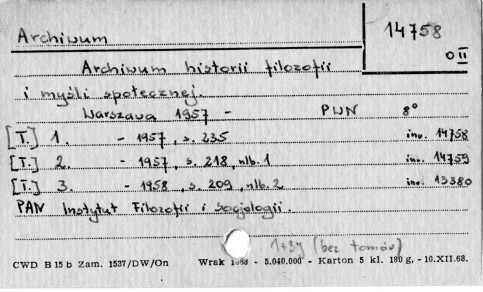 Archiwum
14758
O II
Archiwum historii filozofii
i myśli społecznej.
Warszawa 1957 - PWN 8°
[T.] 1. - 1957, s. 235 inw. 14758
[T.] 2. - 1957, s. 218, nlb. 1 inw. 14759
[T.] 3. - 1958, s. 209, nlb. 2 inw. 13380
PAN Instytut Filozofii i Socjologii.
(bez tomów)
CWD B 15 b Zam. 1537/DW/On Wrak 1968 - 5.040.000 - Karton 5 kl. 180 g. - 10.XII.68.